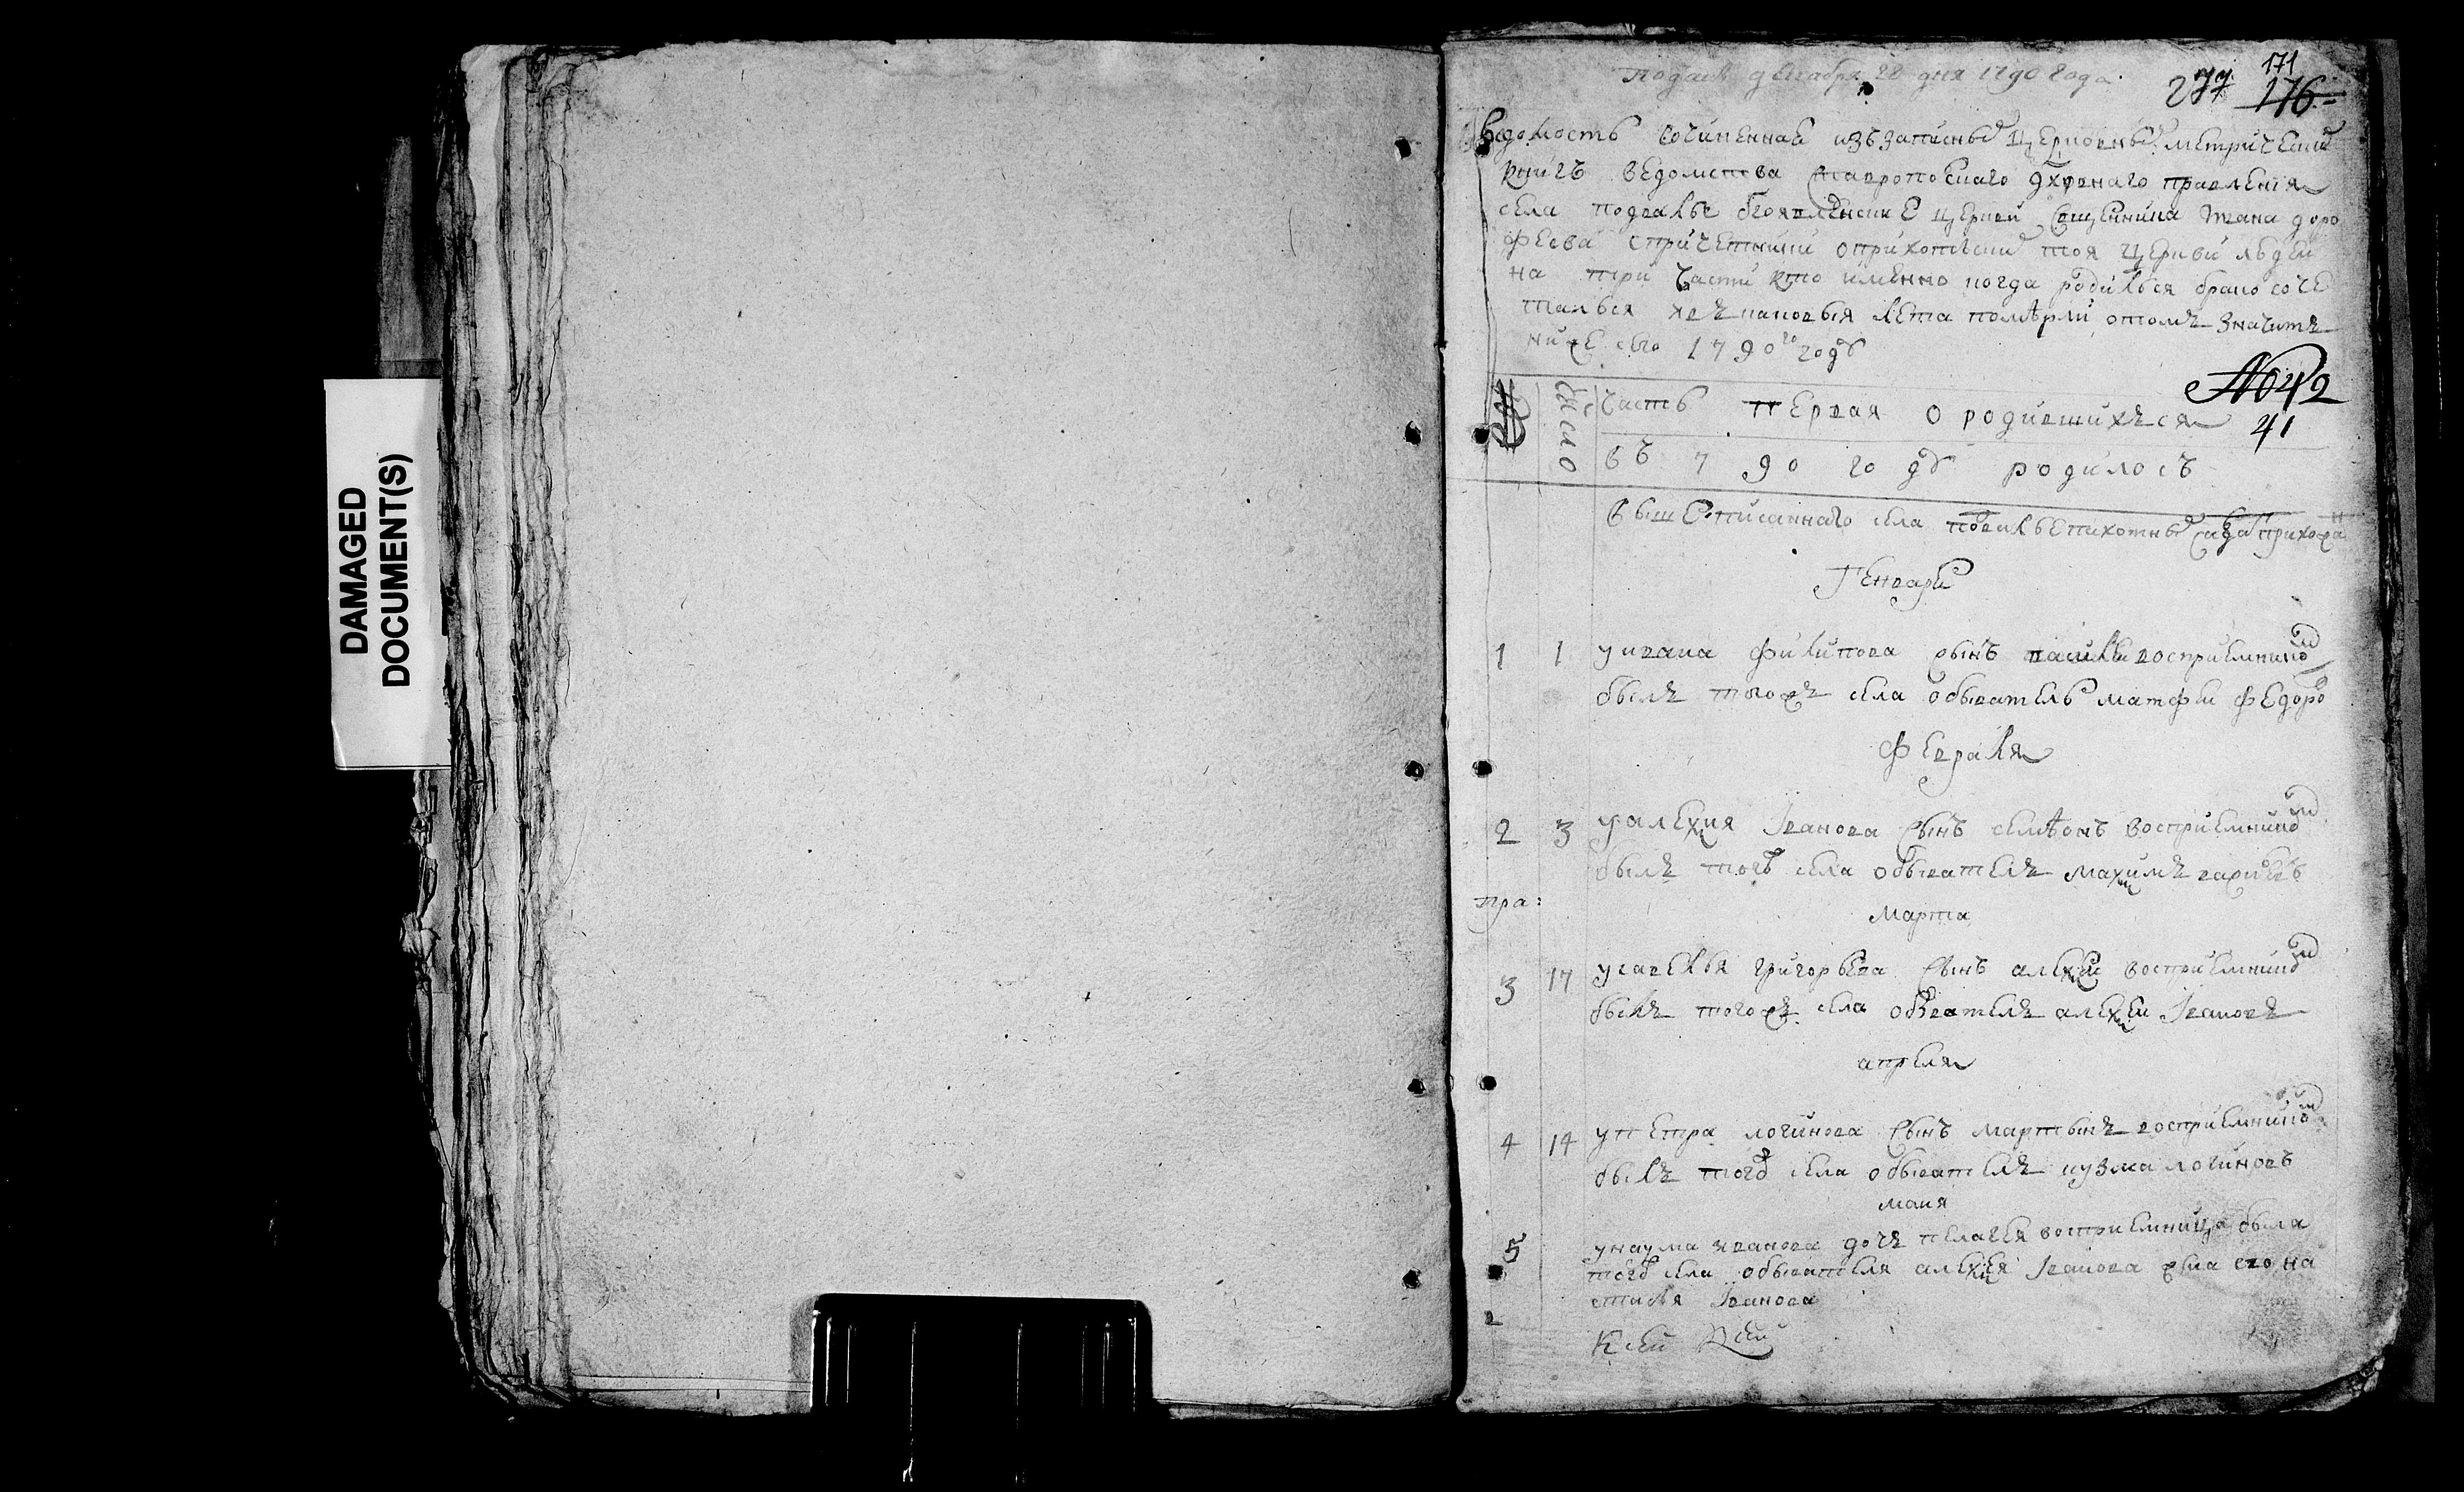 DAMAGED
DOCUMENT(S)
подана декабря 22 дня 1790 года
171
277 176
Ведомость сочиненная изъ записныхъ церковныхъ метрическихъ
книгъ ведомства ставропольскаго духовнаго правления
села подвалья богоявленские церкви священника Иоана доро
феева спричетники оприхотскихъ тоя церкви людеи
на три части кто именно когда родился бракосоче
тался
ниже сего 1790го году
№ 42
41
Число
Часть первая о родившихъся
въ 790 году родилось
вышеписаннаго села подвалье пахотныхъ
Генваря
1 1 у ивана филипова сынъ василеи восприемникомъ
былъ тогожъ села обыватель матфеи федоро
Февраля
2 3 у алекия Иванова сынъ симеонъ восприемникомъ
былъ тогожъ села обывателъ максимъ
пра:
Марта
3 17 у савелья григорьева сынъ алекеи восприемникомъ
былъ тогожъ села обывателъ алекеи Ивановъ
апреля
4 14 у петра логинова сынъ мартынъ восприемникомъ
былъ тогожъ села обывателъ кузма логиновъ
маия
5 у наума иванова дочъ пелагея востриемница была
тогожъ села обывателя алекея Иванова жена его на
стасья Иванова
К сеи